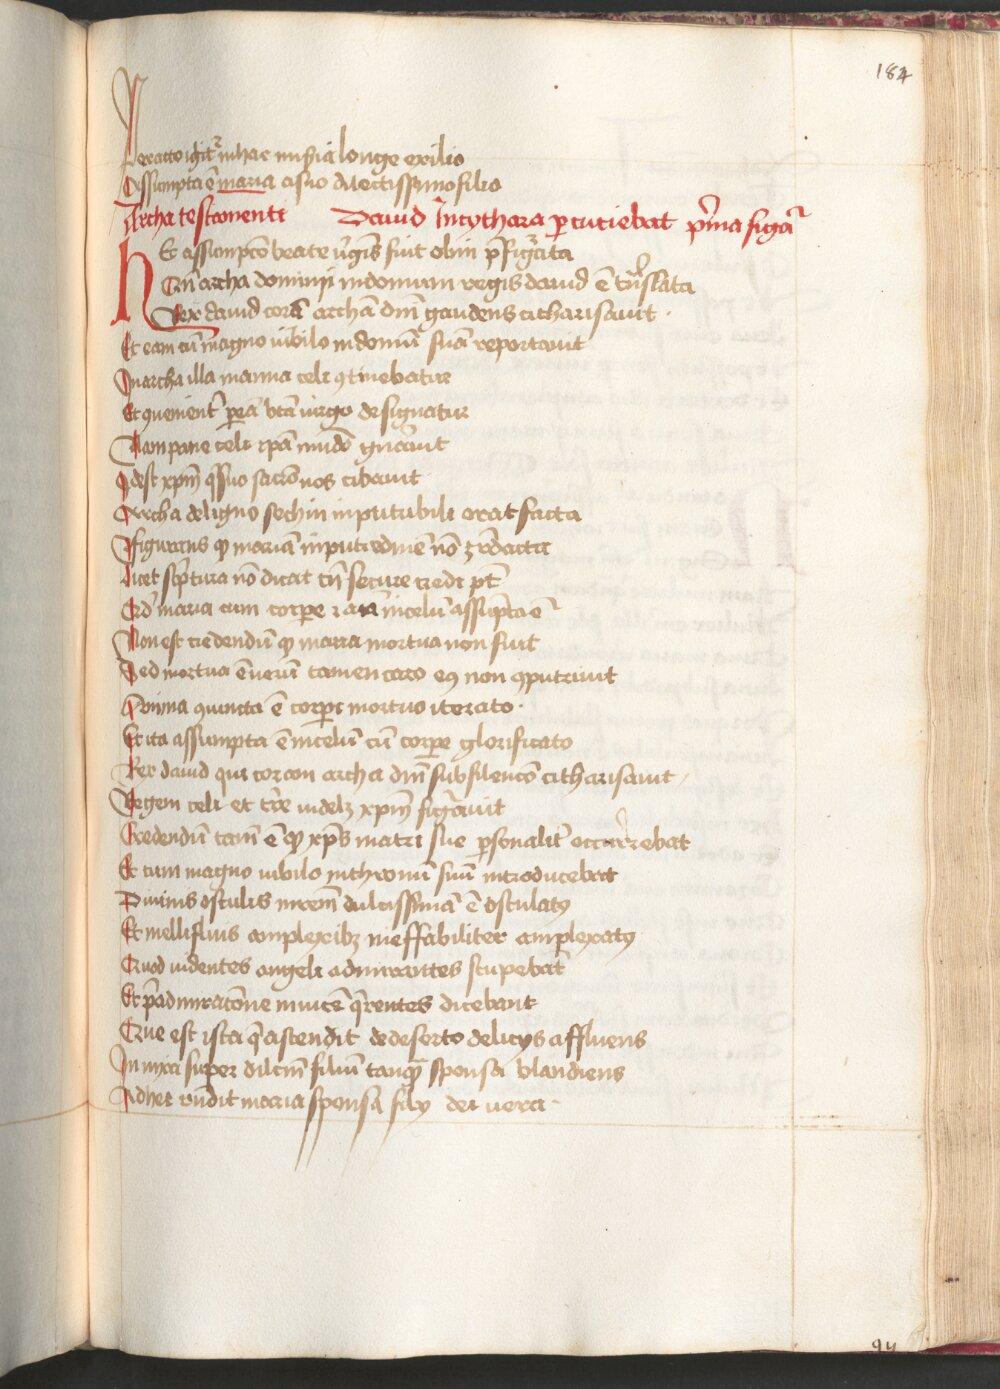 184
Peracto igit᷑ in hac miſia longe exilio
Aſſumpta ē maria a ſuo dilectiſſimo filio
Archa teſtamenti David In cythara p̲cutiebat p̄ma figa᷑
Hec aſſumpc̄o beate v̄gīs fuit olim p̄figᷓata
Cū archa dominj in domum regis dauid ē tᷓnſlata
Rex dauid corā archā dn̄i gaudens cithariſauit ·
Et eam cū magno iubilo in domū ſuā reportauit
In archa illa manna celi ꝯtinebatur
Et ꝯuenient᷑ per eā bt̄a uirgo deſignatur
Nam pane celi ip̄a mūdo gn̄auit
Idest xp̄m q̄ ſuo ſacrō nos cibauit
Archa de ligno ſechin inputribili erat facta
figurans ꝙ mariā in putredinē nō
Licet ſc͛ptura nō dicat tn̄ ſecure credi pt̄
Qd̄ maria cum corpe ⁊ aīa in celū aſſūpta ē
Non est credendū ꝙ maria mortua non fuit
Sed mortua ē uerū tamen caro eꝰ non ꝯputruit
Anima ꝯiuncta ē corpꝑi mortuo iterato ·
Et ita aſſumpta ē in celū cū corpe glorificato
Rex dauid qui coram archa dn̄i cithariſauit
Regem celi et tr̄e uidelꝫ xp̄m figᷓauit
Credendū tam̄ ē ꝙ xp̄s matri ſue p̲ſonalit᷑ occurrebat
Et cum magno iubilo in thronū ſuū introducebat
Diuinis oſculis dulciſſimā ē oſculatꝰ
Et mellifluis amplexibꝫ ineffabiliter amplexatꝰ
Quod uidentes angeli admirantes ſtupebāt
Et p̄ admirac̄one inuicē q̄rentes dicebant
Que est iſta q̄ aſcendit de deſerto delicijs affluens
Innixa ſuper dilc̄m filiū tanqᷓ ſponſa blandiens
Ad hec rn̄dit maria ſponſa filij dei vera ·
94